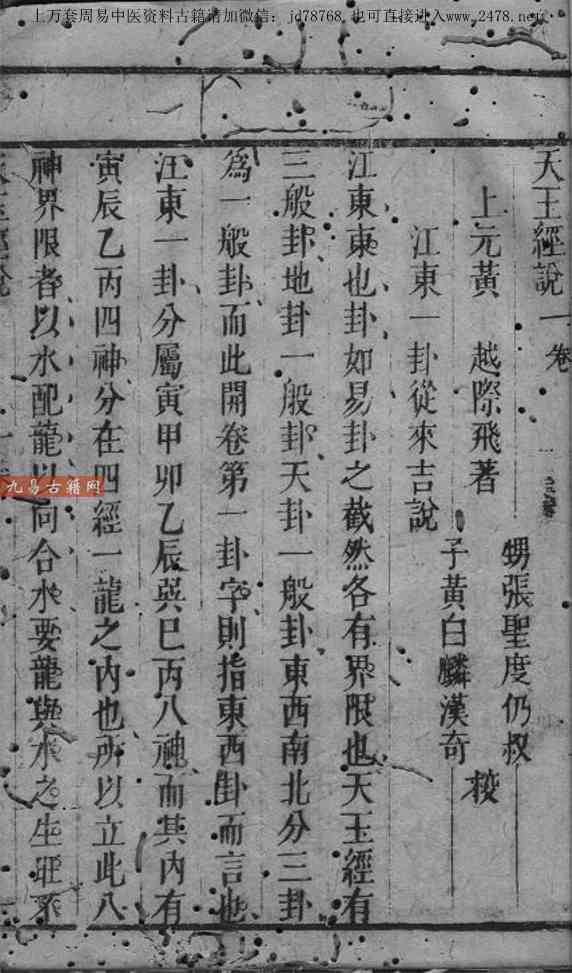 上万套周易中医资料古籍请加微信：jd78768 也可直接进入www.2478.net
天玉經說 一卷
上元黃 越際飛著
甥張聖度仍叔
子黃白麟漢奇
校
江東一卦從來吉說
江東東也卦如易卦之截然各有界限也天玉經有
三般卦地卦一般卦天卦一般卦東西南北分三卦
為一般卦而此開卷第一卦字則指東西卦而言也
江東一卦分屬寅甲卯乙辰巽巳丙八神而其內有
寅辰乙丙四神分在四經一龍之內也所以立此八
神界限者以水配龍以向合水要龍與水之生旺不
九易古籍网